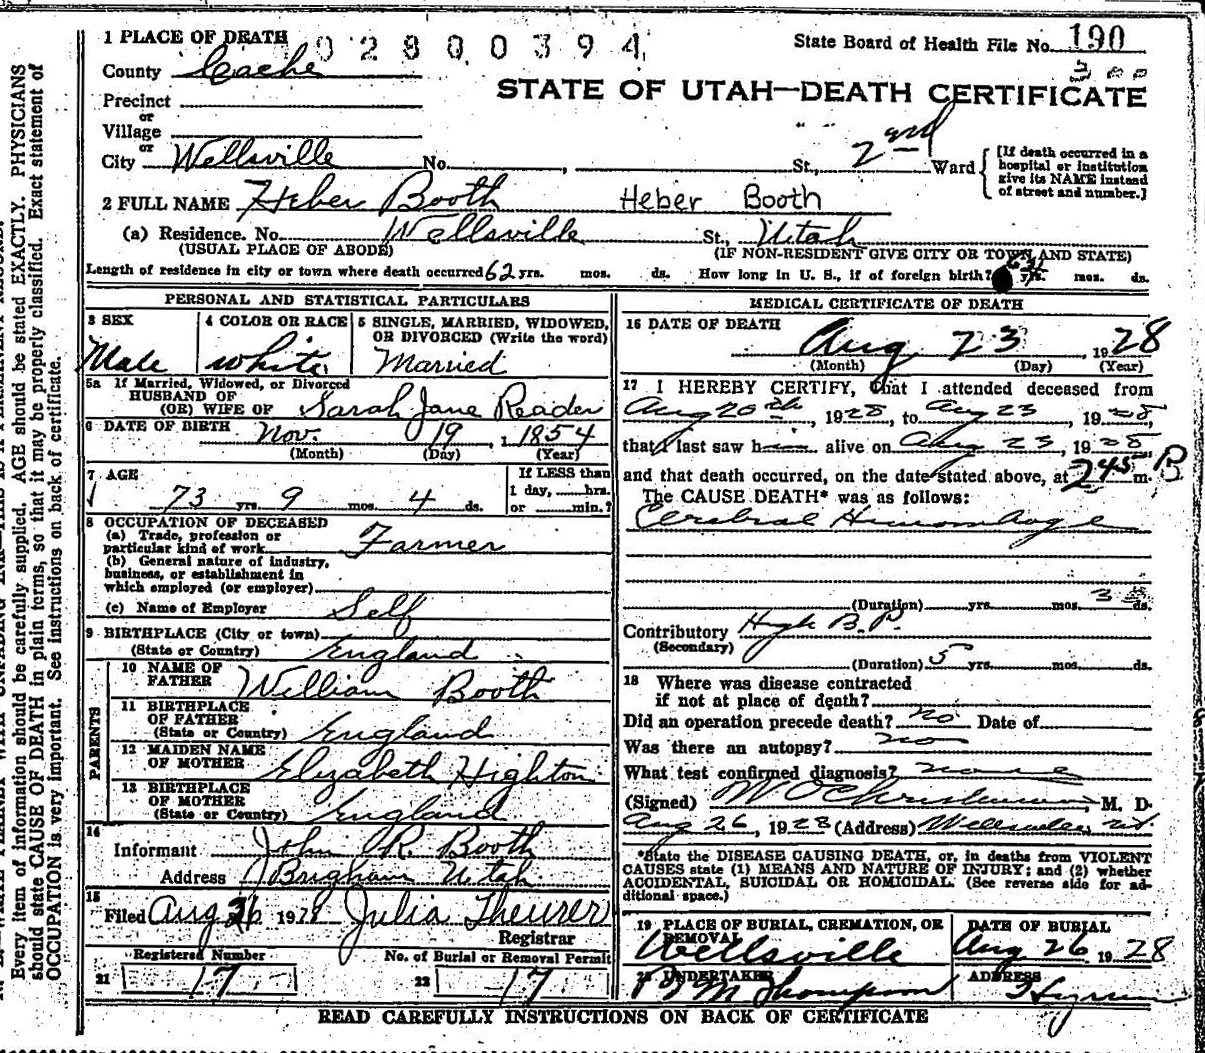 1 PLACE OF DEATH 02800394 State Board of Health File No. 190
County Cache
STATE OF UTAH—DEATH CERTIFICATE
Precinct
or
Village
or
City Wellsville No. , St., 2nd Ward
[If death occurred in a hospital or institution give its NAME instead of street and number.]
2 FULL NAME Heber Booth Heber Booth
(a) Residence. No. Wellsville St., Utah
(USUAL PLACE OF ABODE) (IF NON-RESIDENT GIVE CITY OR TOWN AND STATE)
Length of residence in city or town where death occurred 62 yrs. mos. ds. How long in U. S., if of foreign birth? yrs. mos. ds.
PERSONAL AND STATISTICAL PARTICULARS
3 SEX 4 COLOR OR RACE 5 SINGLE, MARRIED, WIDOWED,
OR DIVORCED (Write the word)
Male white Married
5a If Married, Widowed, or Divorced
HUSBAND OF
(OR) WIFE OF Sarah Jane Reader
6 DATE OF BIRTH Nov. 19, 1854
(Month) (Day) (Year)
7 AGE If LESS than
73 yrs. 9 mos. 4 ds. 1 day, hrs.
or min.?
8 OCCUPATION OF DECEASED
(a) Trade, profession or
particular kind of work Farmer
(b) General nature of industry,
business, or establishment in
which employed (or employer)
(c) Name of Employer Self
9 BIRTHPLACE (City or town)
(State or Country) England
PARENTS
10 NAME OF
FATHER William Booth
11 BIRTHPLACE
OF FATHER
(State or Country) England
12 MAIDEN NAME
OF MOTHER Elizabeth Highton
13 BIRTHPLACE
OF MOTHER
(State or Country) England
14
Informant John R. Booth
Address Brigham Utah
15
Filed Aug 26 1928 Julia Theurer
Registrar
Registered Number No. of Burial or Removal Permit
21 17 22 17
MEDICAL CERTIFICATE OF DEATH
16 DATE OF DEATH
Aug 23, 1928
(Month) (Day) (Year)
17 I HEREBY CERTIFY, that I attended deceased from
Aug 20th, 1928, to Aug 23, 1928,
that I last saw him alive on Aug 23, 1928
and that death occurred, on the date stated above, at 245 m. P
The CAUSE DEATH* was as follows:
Cerebral Hemorrhage
(Duration) yrs. mos. 3 ds.
Contributory High B.P.
(Secondary)
(Duration) 5 yrs. mos. ds.
18 Where was disease contracted
if not at place of death?
Did an operation precede death? no Date of
Was there an autopsy? no
What test confirmed diagnosis? none
(Signed) W O Christensen M. D.
Aug 26, 1928 (Address) Wellsville, Ut.
*State the DISEASE CAUSING DEATH, or, in deaths from VIOLENT
CAUSES state (1) MEANS AND NATURE OF INJURY; and (2) whether
ACCIDENTAL, SUICIDAL OR HOMICIDAL. (See reverse side for ad-
ditional space.)
19 PLACE OF BURIAL, CREMATION, OR
REMOVAL
Wellsville
DATE OF BURIAL
Aug 26 1928
20 UNDERTAKER
M Thompson
ADDRESS
Hyrum
READ CAREFULLY INSTRUCTIONS ON BACK OF CERTIFICATE
Every item of information should be carefully supplied. AGE should be stated EXACTLY. PHYSICIANS
should state CAUSE OF DEATH in plain terms, so that it may be properly classified. Exact statement of
OCCUPATION is very important. See instructions on back of certificate.